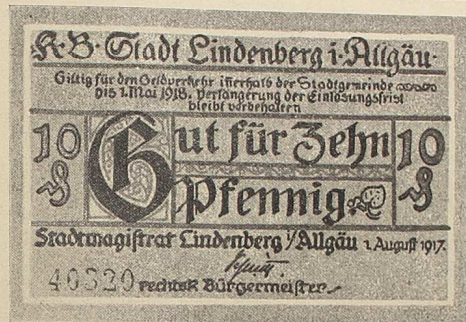 K·B·Stadt Lindenberg i·Allgäu·
Giltig für den Geldverkehr innerhalb der Stadtgemeinde
bis 1. Mai 1918. Verlängerung der Einlösungsfrist
bleibt vorbehalten
10 ₰ Gut für Zehn 10 ₰
Pfennig.
Stadtmagistrat Lindenberg i/Allgäu 1. August 1917.
40320 rechtsk Bürgermeister